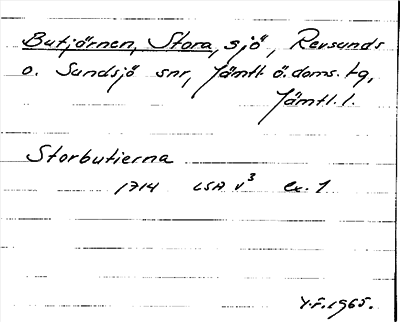 Butjörnen, Stora, sjö, Revsunds
o. Sundsjö snr, Jämtl. ö. doms. tg,
Jämtl. l.
Storbutierna
1714 LSA V³ ex. 1
Y.F. 1965.